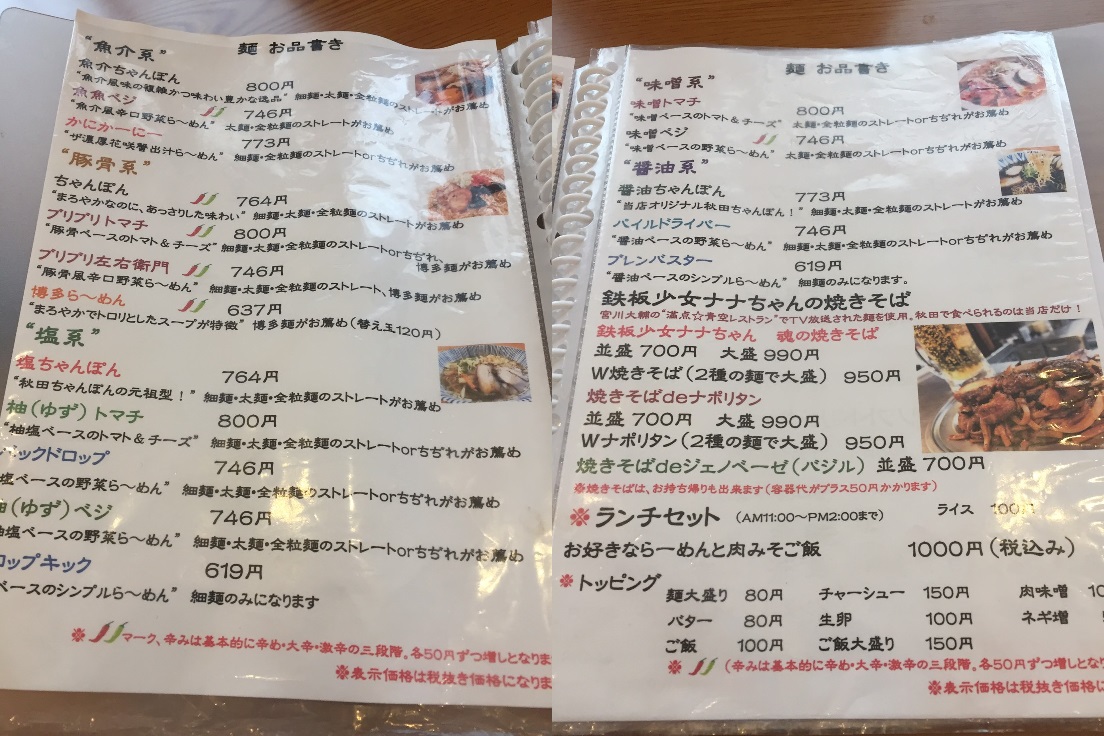 麺 お品書き
“魚介系”
魚介ちゃんぽん 800円
“魚介風味の複雑かつ味わい豊かな逸品” 細麺・太麺・全粒麺のストレートがお薦め
魚魚ベジ 746円
“魚介風辛口野菜ら〜めん” 太麺・全粒麺のストレートがお薦め
かにかーにー 773円
“ザ濃厚花咲蟹出汁ら〜めん” 細麺・太麺・全粒麺のストレートorちぢれがお薦め
“豚骨系”
ちゃんぽん 764円
“まろやかなのに、あっさりした味わい” 細麺・太麺・全粒麺のストレートがお薦め
プリプリトマチ 800円
“豚骨ベースのトマト&チーズ” 細麺・太麺・全粒麺のストレートorちぢれ、
博多麺がお薦め
プリプリ左右衛門 746円
“豚骨風辛口野菜ら〜めん” 細麺・太麺・全粒麺のストレート、博多麺がお薦め
博多ら〜めん 637円
“まろやかでトロリとしたスープが特徴” 博多麺がお薦め(替え玉120円)
“塩系”
塩ちゃんぽん 764円
“秋田ちゃんぽんの元祖型!” 細麺・太麺・全粒麺のストレートがお薦め
柚(ゆず)トマチ 800円
“柚塩ベースのトマト&チーズ” 細麺・太麺・全粒麺のストレートorちぢれがお薦め
ックドロップ 746円
塩ベースの野菜ら〜めん” 細麺・太麺・全粒麺のストレートorちぢれがお薦め
柚(ゆず)ベジ 746円
柚塩ベースの野菜ら〜めん” 細麺・太麺・全粒麺のストレートorちぢれがお薦め
ロップキック 619円
ベースのシンプルら〜めん” 細麺のみになります
※ マーク、辛みは基本的に辛め・大辛・激辛の三段階。各50円ずつ増しとなりま
※表示価格は税抜き価格になりま
麺 お品書き
“味噌系”
味噌トマチ 800円
“味噌ベースのトマト&チーズ” 太麺・全粒麺のストレートorちぢれがお薦め
味噌ベジ 746円
“味噌ベースの野菜ら〜めん” 太麺・全粒麺のストレートorちぢれがお薦め
“醤油系”
醤油ちゃんぽん 773円
“当店オリジナル秋田ちゃんぽん!” 細麺・太麺・全粒麺のストレートがお薦め
パイルドライバー 746円
“醤油ベースの野菜ら〜めん” 細麺・太麺・全粒麺のストレートorちぢれがお薦め
ブレンバスター 619円
“醤油ベースのシンプルら〜めん” 細麺のみになります。
鉄板少女ナナちゃんの焼きそば
宮川大輔の“満点☆青空レストラン”でTV放送された麺を使用。秋田で食べられるのは当店だけ!
鉄板少女ナナちゃん 魂の焼きそば
並盛 700円 大盛 990円
W焼きそば(2種の麺で大盛) 950円
焼きそばdeナポリタン
並盛 700円 大盛 990円
Wナポリタン(2種の麺で大盛) 950円
焼きそばdeジェノベーゼ(バジル) 並盛 700円
※焼きそばは、お持ち帰りも出来ます(容器代がプラス50円かかります)
※ランチセット (AM11:00〜PM2:00まで) ライス 100円
お好きならーめんと肉みそご飯 1000円(税込み)
※トッピング 麺大盛り 80円 チャーシュー 150円 肉味噌 10
バター 80円 生卵 100円 ネギ増
ご飯 100円 ご飯大盛り 150円
※ (辛みは基本的に辛め・大辛・激辛の三段階。各50円ずつ増しとなり
※表示価格は税抜き価格に